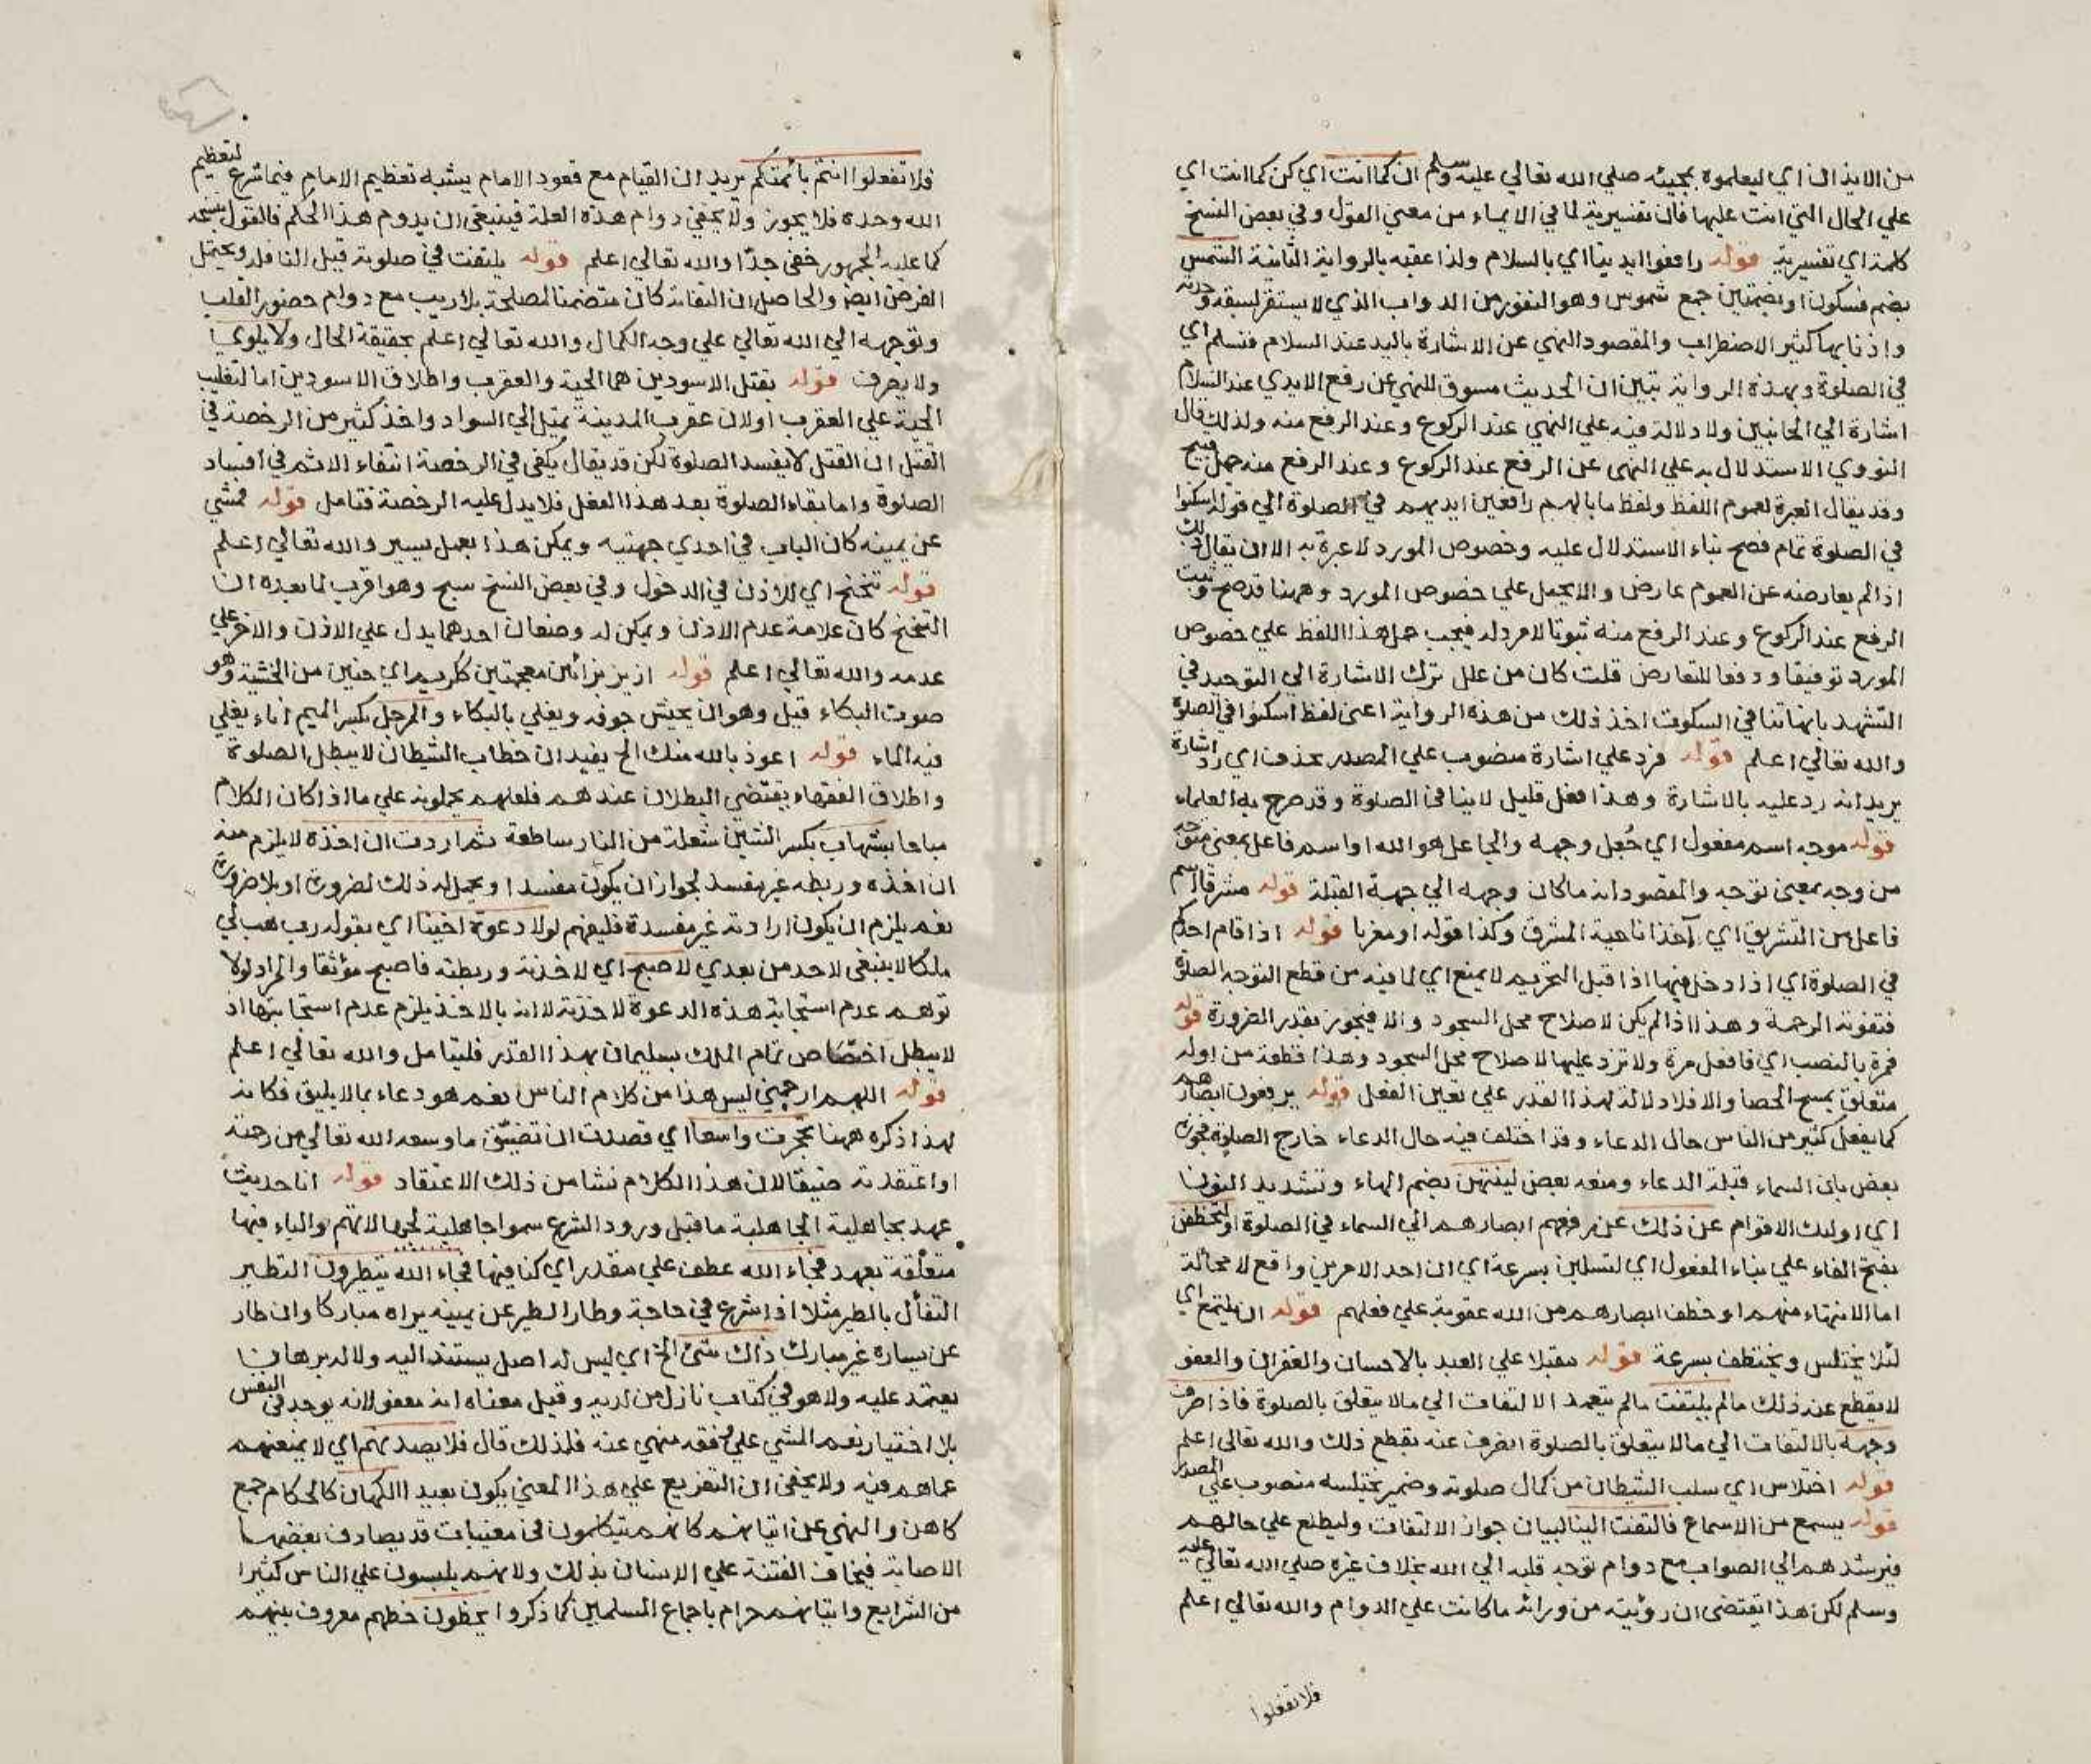 من الايذان اي ليعلموه بمجيئه صلي الله تعالي عليه وسلم ان كما انت اي كن كما انت اي
علي الحال التي انت عليها فان تفسيرية لما في الايماء من معني القول وفي بعض النسخ
كلمة اي تفسيرية قوله رافعوا ايدينا اي بالسلام ولذا عقبه بالرواية الثانية الشمس
بضم فسكون او بضمتين جمع شموس وهو النفور من الدواب الذي لا يستقر لسبقه وحدته
واذنابها كثير الاضطراب والمقصود النهي عن الاشارة باليد عند السلام فنسلم اي
في الصلوة وبهذه الرواية تبين ان الحديث مسوق للنهي عن رفع الايدي عند السلام
اشارة الي الجانبين ولا دلالة فيه علي النهي عند الركوع وعند الرفع منه ولذلك قال
النووي الاستدلال به علي النهي عن الرفع عند الركوع وعند الرفع منه جهل قبيح
وقد يقال العبرة لعموم اللفظ ولفظ ما بالهم رافعين ايديهم في الصلوة الي قوله اسكنوا
في الصلوة تمام فصح بناء الاستدلال عليه وخصوص المورد لا عبرة به الا ان يقال ذلك
اذا لم يعارضه عن العموم عارض والا يحمل علي خصوص المورد وههنا قد صح وثبت
الرفع عند الركوع وعند الرفع منه ثبوتا لا مرد له فيجب حمل هذا اللفظ علي خصوص
المورد توفيقا ودفعا للتعارض قلت كان من علل ترك الاشارة الي التوحيد في
التشهد بانها تنافي السكوت اخذ ذلك من هذه الرواية اعني لفظ اسكنوا في الصلوة
والله تعالي اعلم قوله فرد علي اشارة منصوب علي المصدر بحذف اي رد اشارة
يريد انه رد عليه بالاشارة وهذا فعل قليل لا ينافي الصلوة وقد صرح به العلماء
قوله موجه اسم مفعول اي جُعل وجهه والجاعل هو الله او اسم فاعل بمعني متوجه
من وجه بمعني توجه والمقصود انه ما كان وجهه الي جهة القبلة قوله مشرقا اسم
فاعل من التشريق اي آخذا ناحية المشرق وكذا قوله او مغربا قوله اذا قام احدكم
في الصلوة اي اذا دخل فيها اذا قبل التحريم لا يمنع اي لما فيه من قطع التوجه الصلوة
فتفوته الرحمة وهذا اذا لم يكن لاصلاح محل السجود والا فيجوز بقدر الضرورة قوله
فمرة بالنصب اي فافعل مرة ولا تزد عليها لاصلاح محل السجود وهذا قطعة من اوله
متعلق بمسح الحصا والا فلا دلالة لهذا القدر علي تعيين الفعل قوله يرفعون ابصارهم
كما يفعل كثير من الناس حال الدعاء وقد اختلف فيه حال الدعاء خارج الصلوة فجوزه
بعض بان السماء قبلة الدعاء ومنعه بعض لينتهن بضم الهاء وتشديد النون
اي اولئك الاقوام عن ذلك عن رفعهم ابصارهم الي السماء في الصلوة او لتخطفن
بفتح الفاء علي بناء المفعول اي لتسلبن بسرعة اي ان احد الامرين واقع لا محالة
اما الانتهاء منهم او خطف ابصارهم من الله عقوبة علي فعلهم قوله ان يلتمع اي
لئلا يختلس ويختطف بسرعة قوله مقبلا علي العبد بالاحسان والغفران والعفو
لا يقطع عنه ذلك مالم يلتفت مالم يتعمد الالتفات الي مالا يتعلق بالصلوة فاذا صرف
وجهه بالالتفات الي مالا يتعلق بالصلوة انصرف عنه بقطع ذلك والله تعالي اعلم
قوله اختلاس اي سلب الشيطان من كمال صلوته وضمير يختلسه منصوب علي المصدر
قوله يسمع من الاسماع فالتفت الينا لبيان جواز الالتفات وليطلع علي حالهم
فيرشدهم الي الصواب مع دوام توجه قلبه الي الله بخلاف غيره صلي الله تعالي عليه
وسلم لكن هذا يقتضي ان رؤيته من ورائه ما كانت علي الدوام والله تعالي اعلم
فلا تفعلوا
فلا تفعلوا ائتم بائمتكم يريد ان القيام مع قعود الامام يشبه تعظيم الامام فيما شرع لتعظيم
الله وحده فلا يجوز ولا يخفي دوام هذه العلة فينبغي ان يدوم هذا الحكم فالقول بنسخه
كما عليه الجمهور خفي جدّا والله تعالي اعلم قوله يلتفت في صلوته قيل النافلة ويحتمل
الفرض ايضا والحاصل ان التفاته كان متضمنا لمصلحة بلا ريب مع دوام حضور القلب
وتوجهه الي الله تعالي علي وجه الكمال والله تعالي اعلم بحقيقة الحال ولا يلوي
ولا يصرف قوله بقتل الاسودين هما الحية والعقرب واطلاق الاسودين اما لتغليب
الحية علي العقرب او لان عقرب المدينة يميل الي السواد واخذ كثير من الرخصة في
القتل ان القتل لا يفسد الصلوة لكن قد يقال يكفي في الرخصة انتفاء الاثم في افساد
الصلوة واما بقاء الصلوة بعد هذا الفعل فلا يدل عليه الرخصة فتامل قوله فمشي
عن يمينه كان الباب في احدي جهتيه ويمكن هذا بعمل يسير والله تعالي اعلم
قوله تنحنح اي للاذن في الدخول وفي بعض النسخ سبح وهو اقرب لما بعده ان
التنحنح كان علامة عدم الاذن ويمكن له وضعان احدهما يدل علي الاذن والاخر علي
عدمه والله تعالي اعلم قوله ازيز بزائين معجمتين ككريم اي حنين من الخشية وهو
صوت البكاء قيل وهو ان يجيش جوفه ويغلي بالبكاء والمرجل بكسر الميم اناء يغلي
فيه الماء قوله اعوذ بالله منك الخ يفيد ان خطاب الشيطان لا يبطل الصلوة
واطلاق الفقهاء يقتضي البطلان عندهم فلعلهم يحملونه علي ما اذا كان الكلام
مباحا بشهاب بكسر الشين شعلة من النار ساطعة ثم اردت ان اخذه لا يلزم منه
ان اخذه وربطه غير مفسد لجواز ان يكون مفسدا ويحمل له ذلك لضرورة او بلا ضرورة
نعم يلزم ان يكون ارادته غير مفسدة فليفهم لولا دعوة اخينا اي بقوله رب هب لي
ملكا لا ينبغي لاحد من بعدي لاصبح اي لاخذته وربطته فاصبح مؤثقا والمراد لولا
توهم عدم استجابة هذه الدعوة لاخذته لا انه بالاخذ يلزم عدم استجابتها اذ
لا يبطل اختصاص تمام الملك بسليمان بهذا القدر فليتامل والله تعالي اعلم
قوله اللهم ارحمني ليس هذا من كلام الناس نعم هو دعاء بما لا يليق فكانه
لهذا ذكره ههنا تحجرت واسعا اي قصدت ان تضيّق ما وسعه الله تعالي من رحمته
او اعتقدته ضيقا لان هذا الكلام نشا من ذلك الاعتقاد قوله انا حديث
عهد بجاهلية الجاهلية ما قبل ورود الشرع سموا جاهلية لجهالاتهم والباء فيها
متعلقة بعهد فجاء الله عطف علي مقدر اي كنا فيها فجاء الله يتطيرون التطير
التفأل بالطير مثلا اذا شرع في حاجة وطار الطير عن يمينه يراه مباركا وان طار
عن يساره غير مبارك ذاك شئ الخ اي ليس له اصل يستند اليه ولا له برهان
يعتمد عليه ولا هو في كتاب نازل من لديه وقيل معناه انه معفو لانه يوجد في النفس
بلا اختيار نعم المشي علي وفقه منهي عنه فلذلك قال فلا يصدنهم اي لا يمنعهم
عما هم فيه ولا يخفي ان التفريع علي هذا المعني يكون بعيدا الكهان كالحكام جمع
كاهن والنهي عن اتيانهم لانهم يتكلمون في مغيبات قد يصادف بعضها
الاصابة فيخاف الفتنة علي الانسان بذلك ولانهم يلبسون علي الناس كثيرا
من الشرايع واتيانهم حرام باجماع المسلمين كما ذكروا يخطون خطهم معروف بينهم